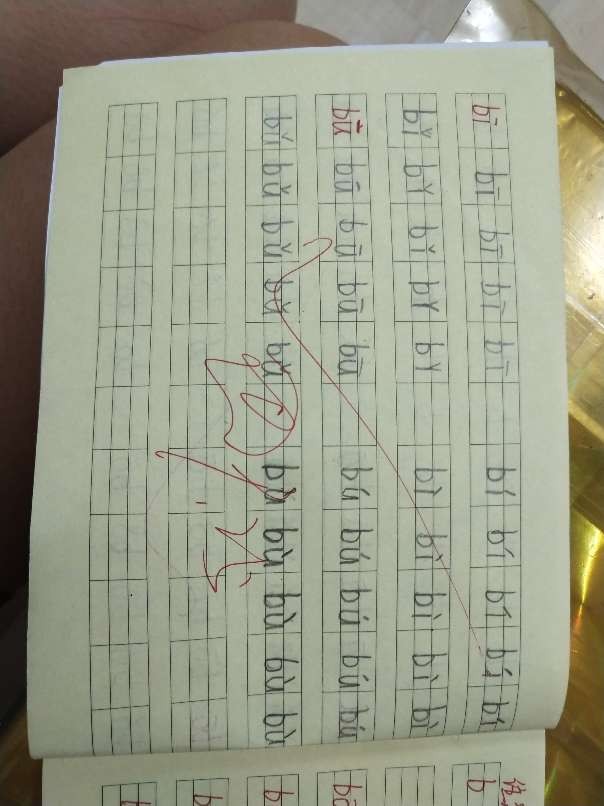 bī bī bī bī bī bí bí bí bí bí
bǐ bǐ bǐ bǐ bǐ bì bì bì bì bì
bū bū bū bū bū bú bú bú bú bú
bǔ bǔ bǔ bǔ bǔ bù bù bù bù bù